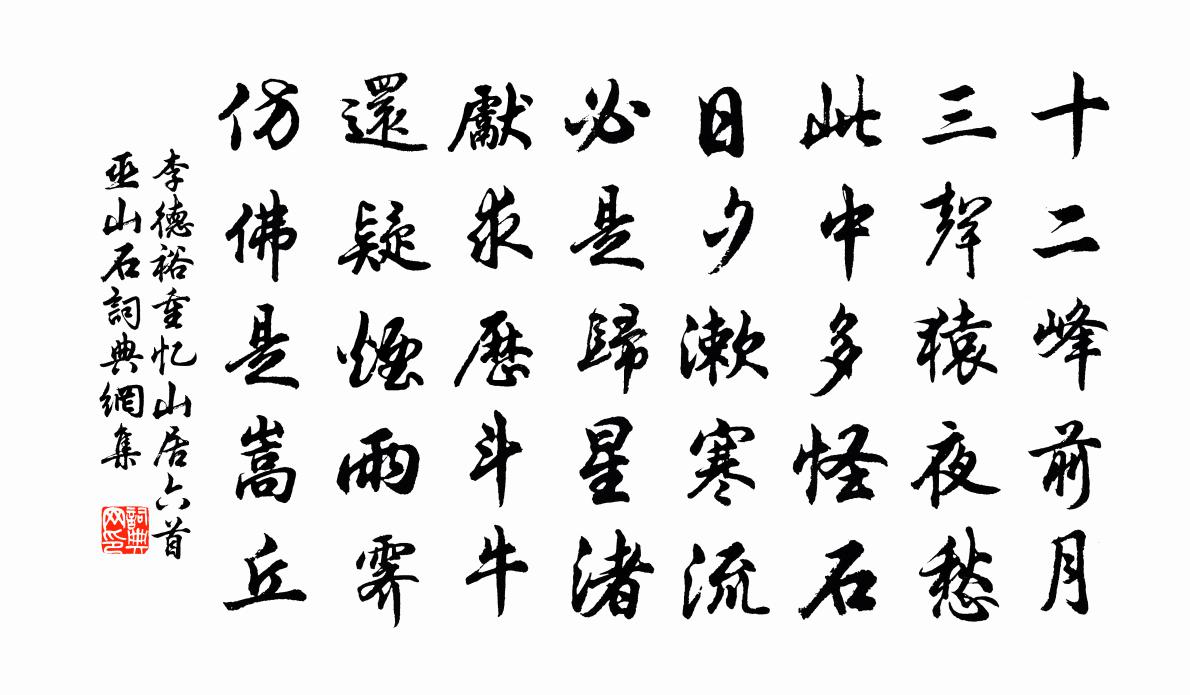 十二峰前月
三聲猿夜愁
此中多怪石
日夕漱寒流
必是歸星渚
獻求歷斗牛
還疑煙雨霽
仿佛是嵩丘
李德裕重忆山居六首
巫山石詞典網集
詞典网印